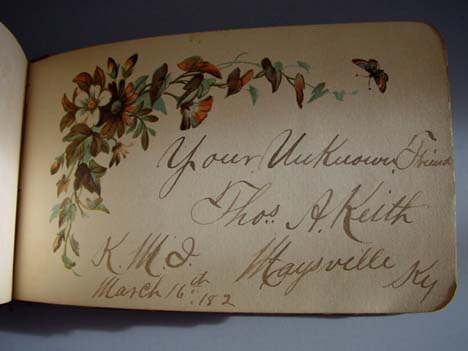 Your Unknown Friend
Thos. A. Keith
K. M. I. Maysville Ky
March 16th 182